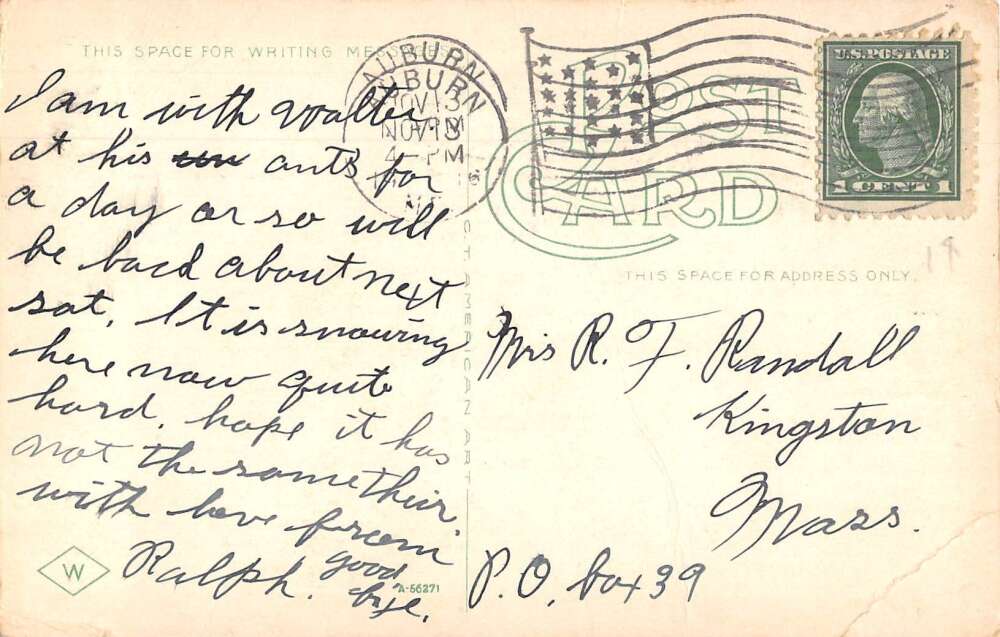 THIS SPACE FOR WRITING MESSAGES
AUBURN
NOV 13
4 PM
POST
CARD
U.S. POSTAGE
1 CENT 1
THIS SPACE FOR ADDRESS ONLY.
I am with Walter
at his ants for
a day or so will
be back about next
sat. It is snowing
here now quite
hard. hope it has
not the same their.
with love from
Ralph. good
bye.
C T AMERICAN ART
Mrs R. F. Randall
Kingston
Mass.
P.O. box 39
W
A-56271
18